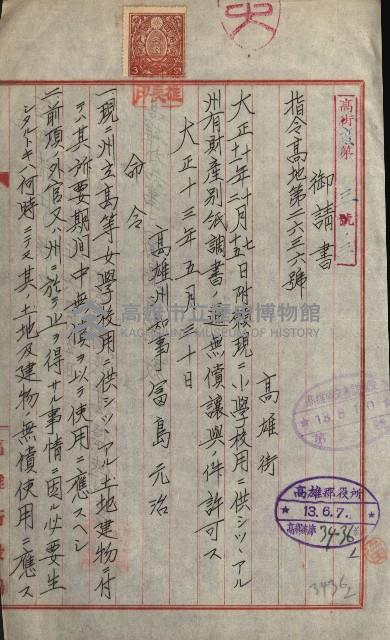 御請書
指令高地第二六三六號
高雄街
大正十一年十一月十七日附願現ニ小學校用ニ供シツ丶アル
州有財産別紙調書ノ通無償讓與ノ件許可ス
大正十三年五月三十日
高雄州知事 富島元治
命令
一、現ニ州立高等女學校用ニ供シツ丶アル土地建物ニ付
テハ其ノ所要期间中無償ヲ以テ使用ニ應スヘシ
二、前項ノ外官又ハ州ニ於テ止ヲ得サル事情ニ因リ必要生
シタルトキハ何時ニテモ其ノ土地及建物ノ無償使用ニ應ス
高雄郡役所
13.6.7.
3436
3436
高雄市立歷史博物館
KAOHSIUNG MUSEUM OF HISTORY